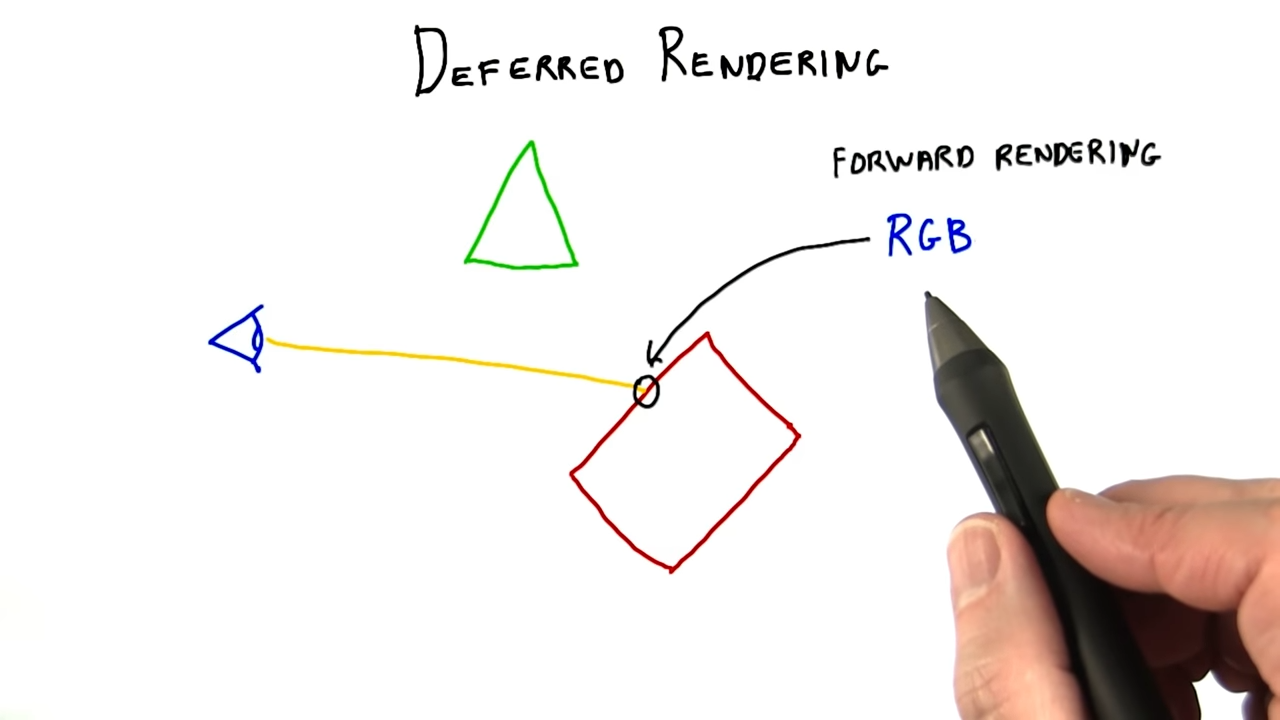 DEFERRED RENDERING
FORWARD RENDERING
RGB